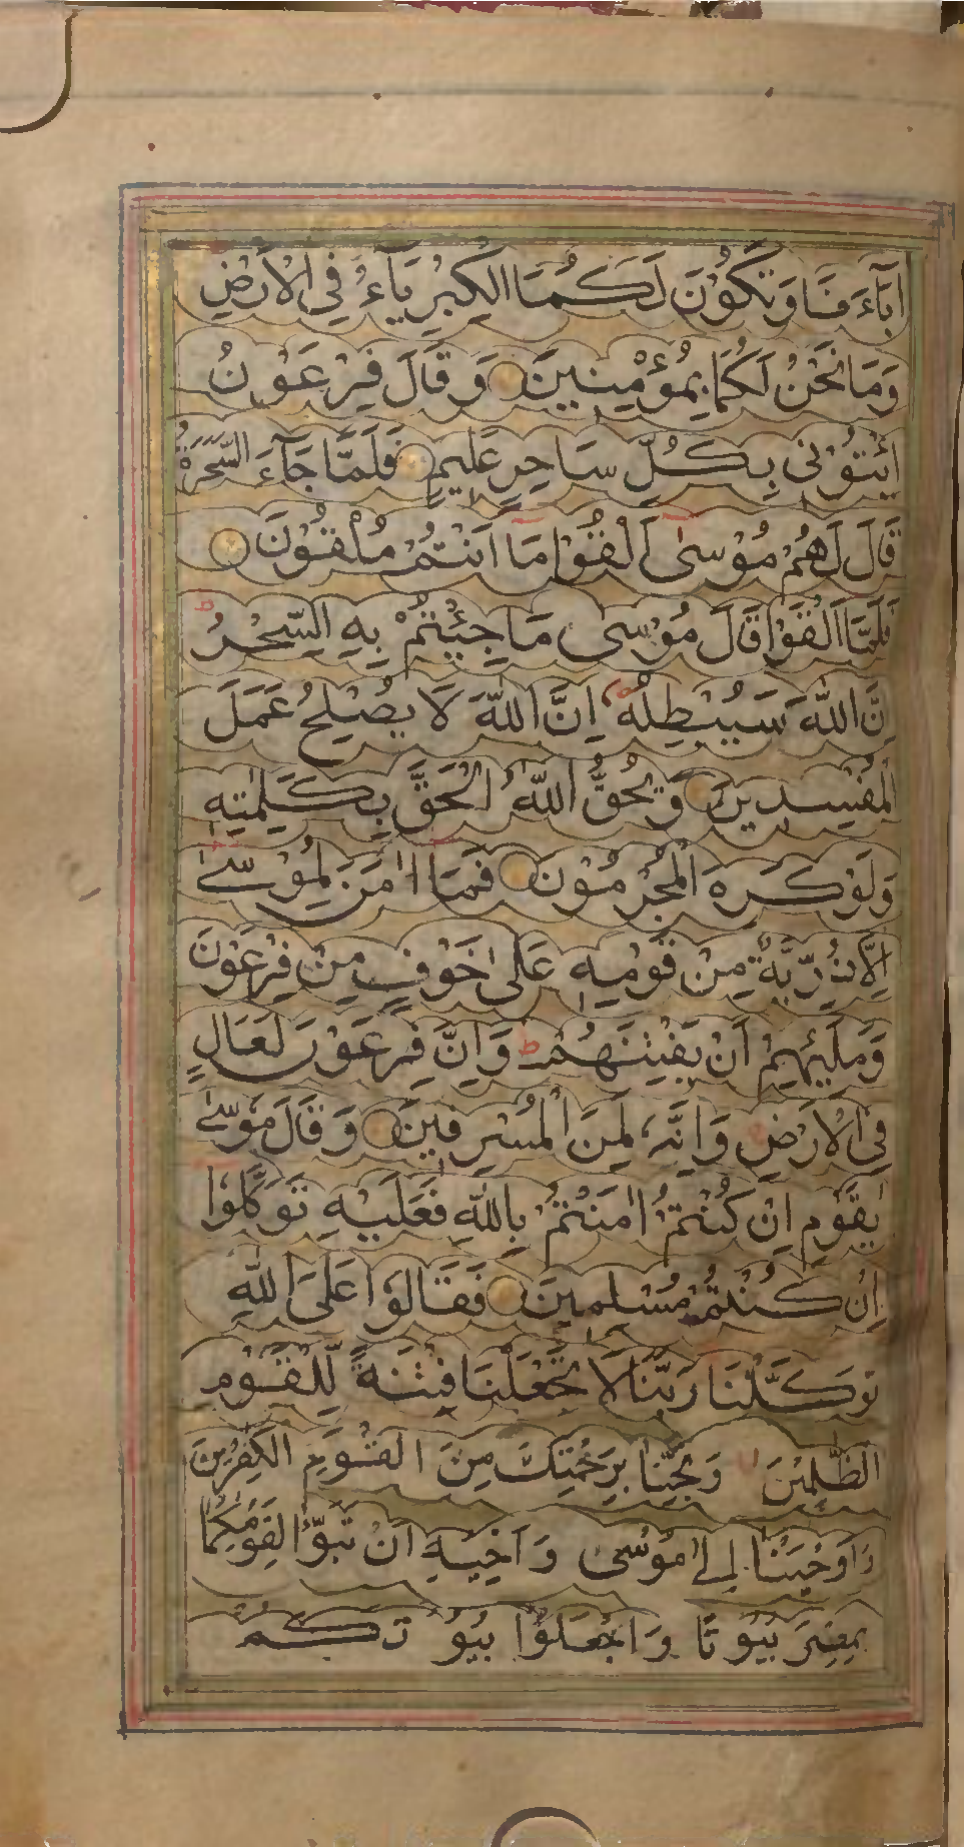 اٰبَآءَنَا وَتَكُوْنَ لَكُمَا الْكِبْرِيَآءُ فِي الْاَرْضِ
وَمَا نَحْنُ لَكُمَا بِمُؤْمِنِيْنَ وَقَالَ فِرْعَوْنُ
ائْتُوْنِيْ بِكُلِّ سَاحِرٍ عَلِيْمٍ فَلَمَّا جَآءَ السَّحَرَةُ
قَالَ لَهُمْ مُوْسٰى اَلْقُوْا مَا اَنْتُمْ مُلْقُوْنَ
فَلَمَّا اَلْقَوْا قَالَ مُوْسٰى مَا جِئْتُمْ بِهِ السِّحْرُ ط
اِنَّ اللّٰهَ سَيُبْطِلُهٗ اِنَّ اللّٰهَ لَا يُصْلِحُ عَمَلَ
الْمُفْسِدِيْنَ وَيُحِقُّ اللّٰهُ الْحَقَّ بِكَلِمٰتِهٖ
وَلَوْ كَرِهَ الْمُجْرِمُوْنَ فَمَا اٰمَنَ لِمُوْسٰى
اِلَّا ذُرِّيَّةٌ مِنْ قَوْمِهٖ عَلٰى خَوْفٍ مِنْ فِرْعَوْنَ
وَمَلَئِهِمْ اَنْ يَفْتِنَهُمْ ط وَاِنَّ فِرْعَوْنَ لَعَالٍ
فِي الْاَرْضِ وَاِنَّهٗ لَمِنَ الْمُسْرِفِيْنَ وَقَالَ مُوْسٰى
يٰقَوْمِ اِنْ كُنْتُمْ اٰمَنْتُمْ بِاللّٰهِ فَعَلَيْهِ تَوَكَّلُوْا
اِنْ كُنْتُمْ مُسْلِمِيْنَ فَقَالُوْا عَلَى اللّٰهِ
تَوَكَّلْنَا رَبَّنَا لَا تَجْعَلْنَا فِتْنَةً لِّلْقَوْمِ
الظّٰلِمِيْنَ وَنَجِّنَا بِرَحْمَتِكَ مِنَ الْقَوْمِ الْكٰفِرِيْنَ
وَاَوْحَيْنَا اِلٰى مُوْسٰى وَاَخِيْهِ اَنْ تَبَوَّاٰ لِقَوْمِكُمَا
بِمِصْرَ بُيُوْتًا وَاجْعَلُوْا بُيُوْتَكُمْ